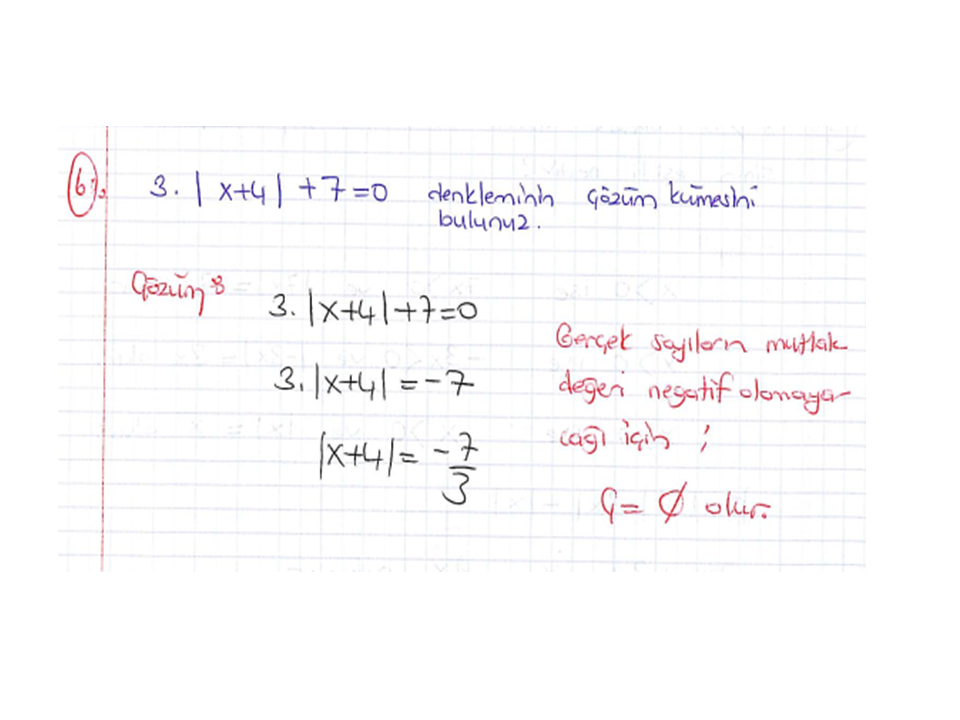 6). 3. |x+4| +7=0 denkleminin çözüm kümesini
bulunuz.
Çözüm:
3. |x+4|+7=0
3. |x+4| = -7
|x+4| = -7/3
Gerçek sayıların mutlak
değeri negatif olamaya-
cağı için ;
Ç= ∅ olur.